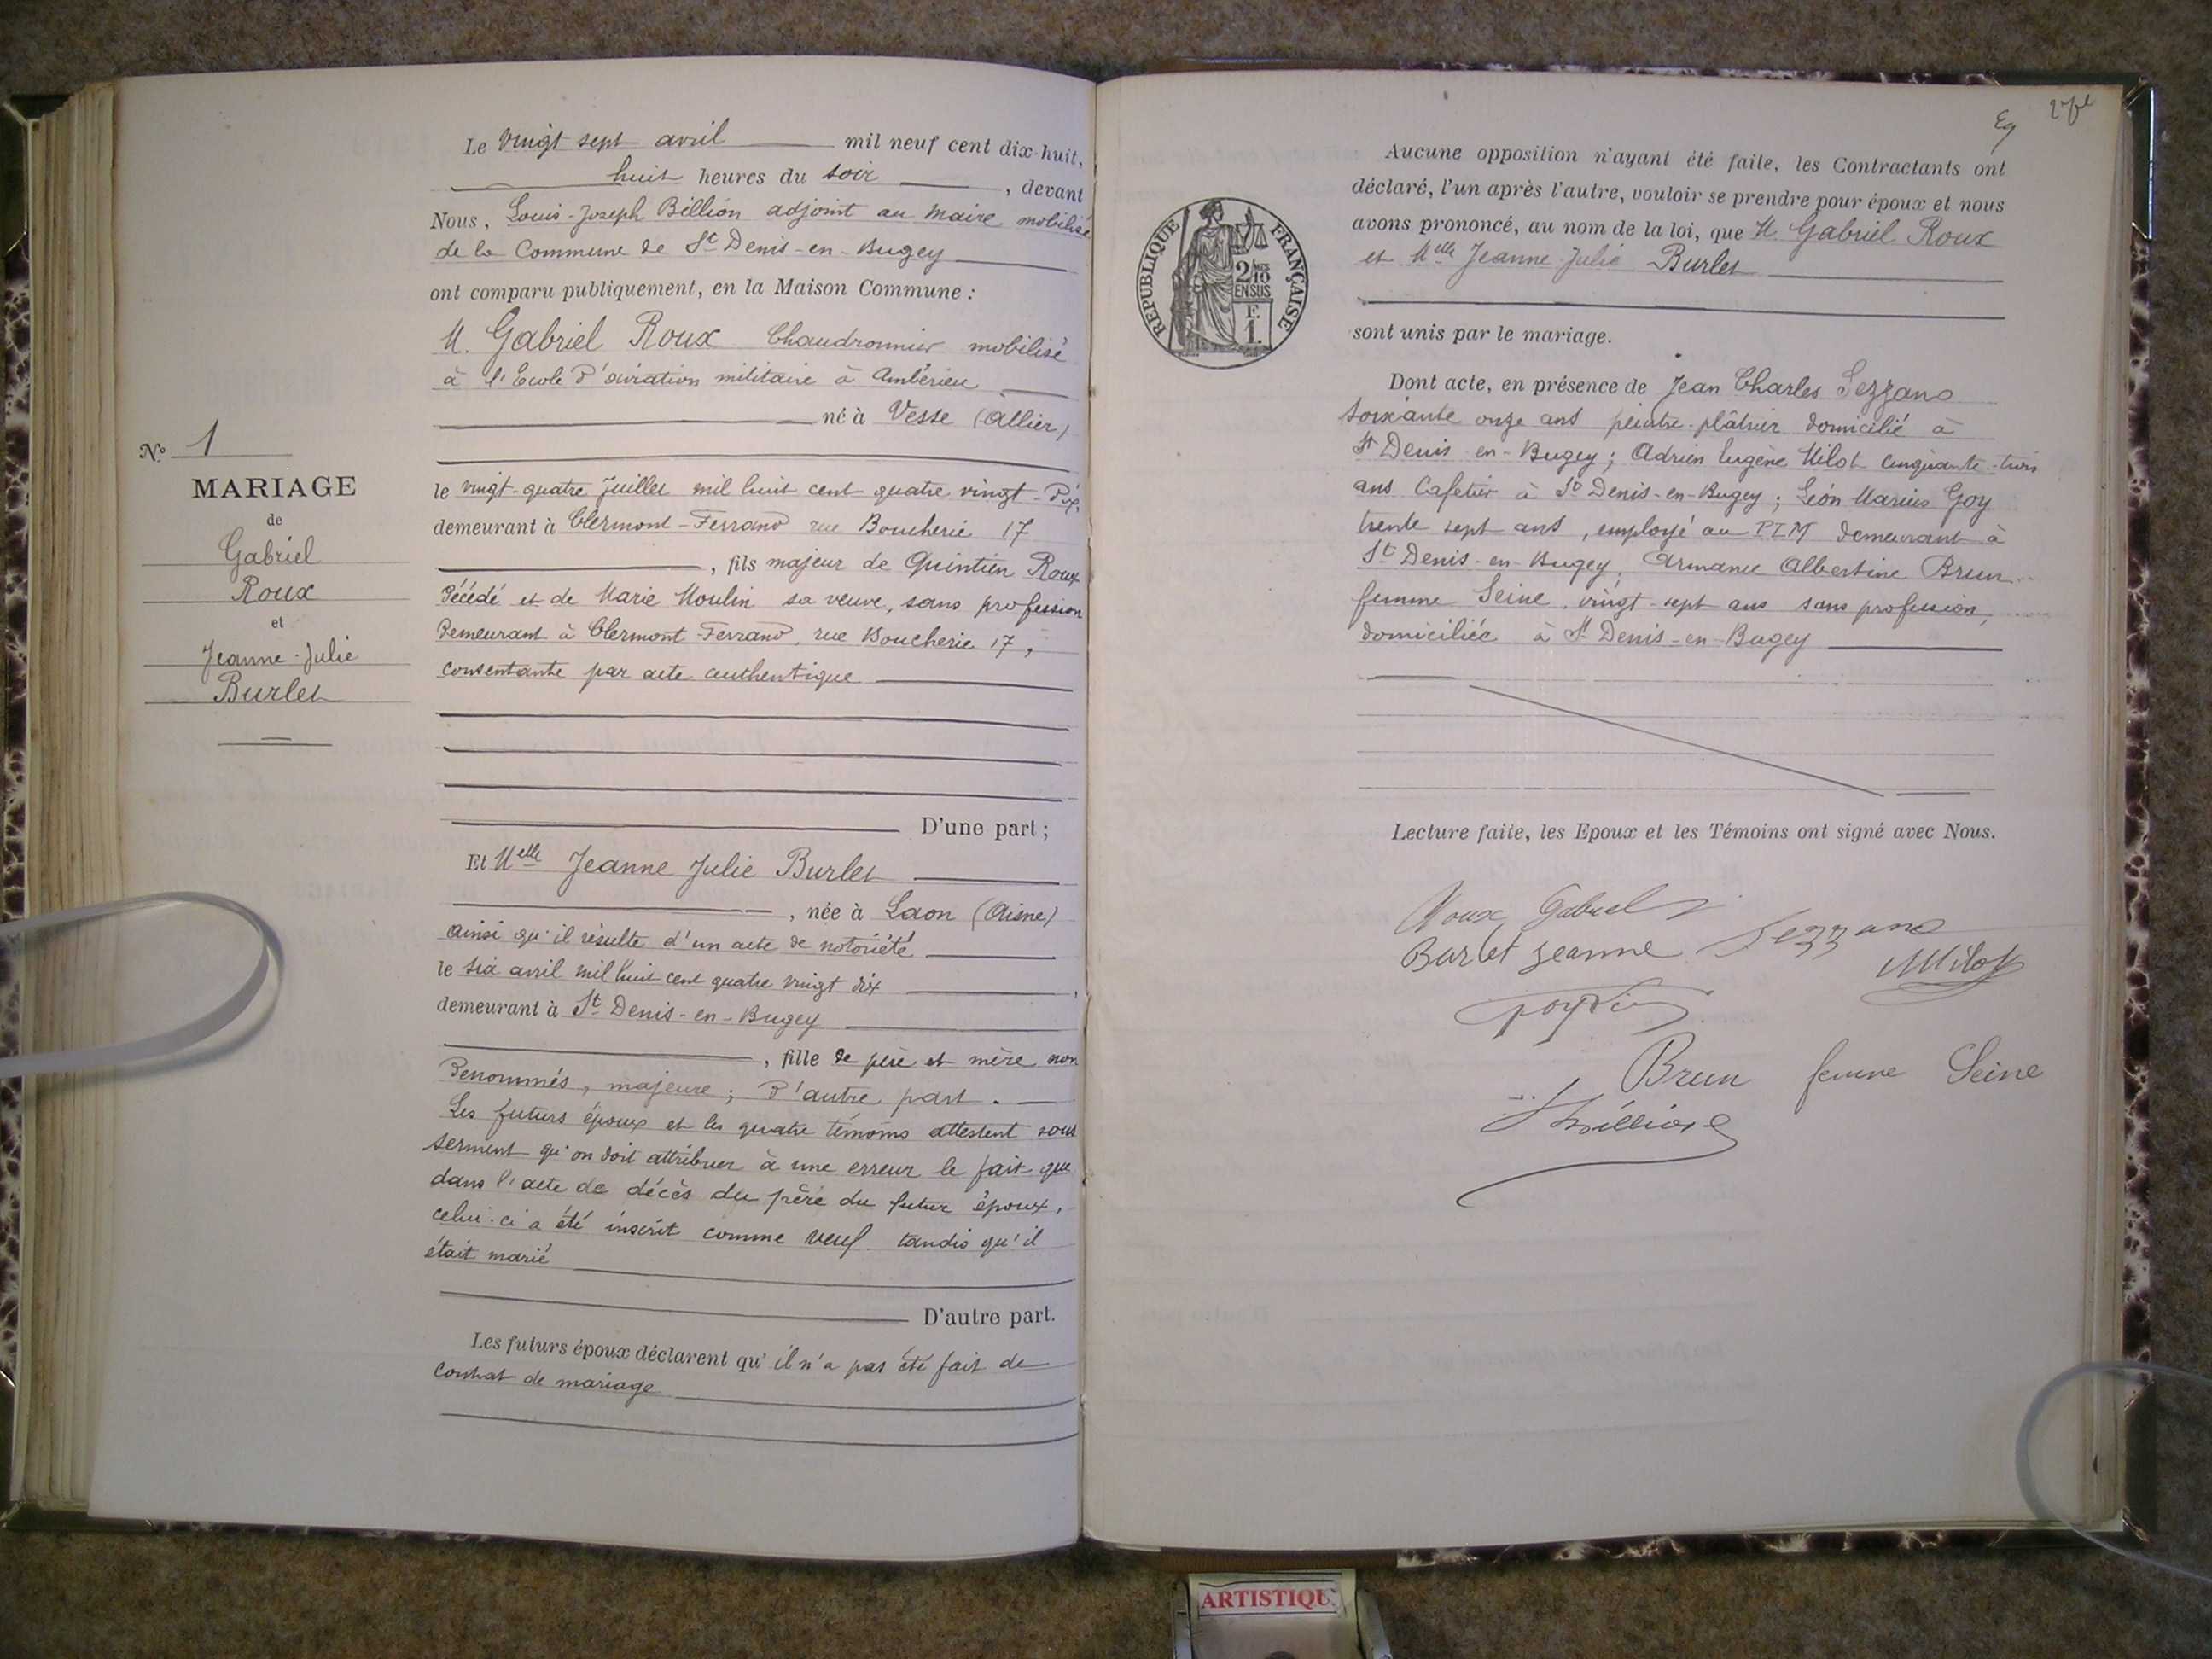 Le vingt sept avril mil neuf cent dix-huit,
huit heures du soir, devant
Nous, Louis-Joseph Billion adjoint au Maire mobilisé
de la Commune de St Denis-en-Bugey
ont comparu publiquement, en la Maison Commune :
M. Gabriel Roux Chaudronnier mobilisé
à l'Ecole d'aviation militaire à Ambérieu
né à Vesse (Allier)
No 1
MARIAGE
de
Gabriel
Roux
et
Jeanne-Julie
Burlet
le vingt-quatre Juillet mil huit cent quatre vingt-dix,
demeurant à Clermont-Ferrand rue Boucherie 17
, fils majeur de Quintien Roux
décédé et de Marie Moulin sa veuve, sans profession
demeurant à Clermont-Ferrand, rue Boucherie 17,
consentante par acte authentique
D'une part ;
Et Melle Jeanne Julie Burlet
, née à Laon (Aisne)
ainsi qu'il résulte d'un acte de notoriété
le six avril mil huit cent quatre vingt dix,
demeurant à St Denis-en-Bugey
, fille de père et mère non
dénommés, majeure ; d'autre part.
Les futurs époux et les quatre témoins attestent sous
serment qu'on doit attribuer à une erreur le fait que
dans l'acte de décès du père du futur époux,
celui-ci a été inscrit comme veuf tandis qu'il
était marié
D'autre part.
Les futurs époux déclarent qu'il n'a pas été fait de
contrat de mariage
RÉPUBLIQUE FRANÇAISE
2 MES
10
EN SUS
F.
1.
Aucune opposition n'ayant été faite, les Contractants ont
déclaré, l'un après l'autre, vouloir se prendre pour époux et nous
avons prononcé, au nom de la loi, que M. Gabriel Roux
et Melle Jeanne Julie Burlet
sont unis par le mariage.
Dont acte, en présence de Jean Charles Sezzano
soixante onze ans peintre-plâtrier domicilié à
St Denis-en-Bugey ; Adrien Eugène Milot cinquante-trois
ans Cafetier à St Denis-en-Bugey ; Léon Marius Goy
trente sept ans, employé au PLM demeurant à
St Denis-en-Bugey, Armance Albertine Brun
femme Seine, vingt-sept ans sans profession,
domiciliée à St Denis-en-Bugey
Lecture faite, les Epoux et les Témoins ont signé avec Nous.
Roux Gabriel
Burlet Jeanne Sezzano
Milot
Brun femme Seine
Billion
ARTISTIQU